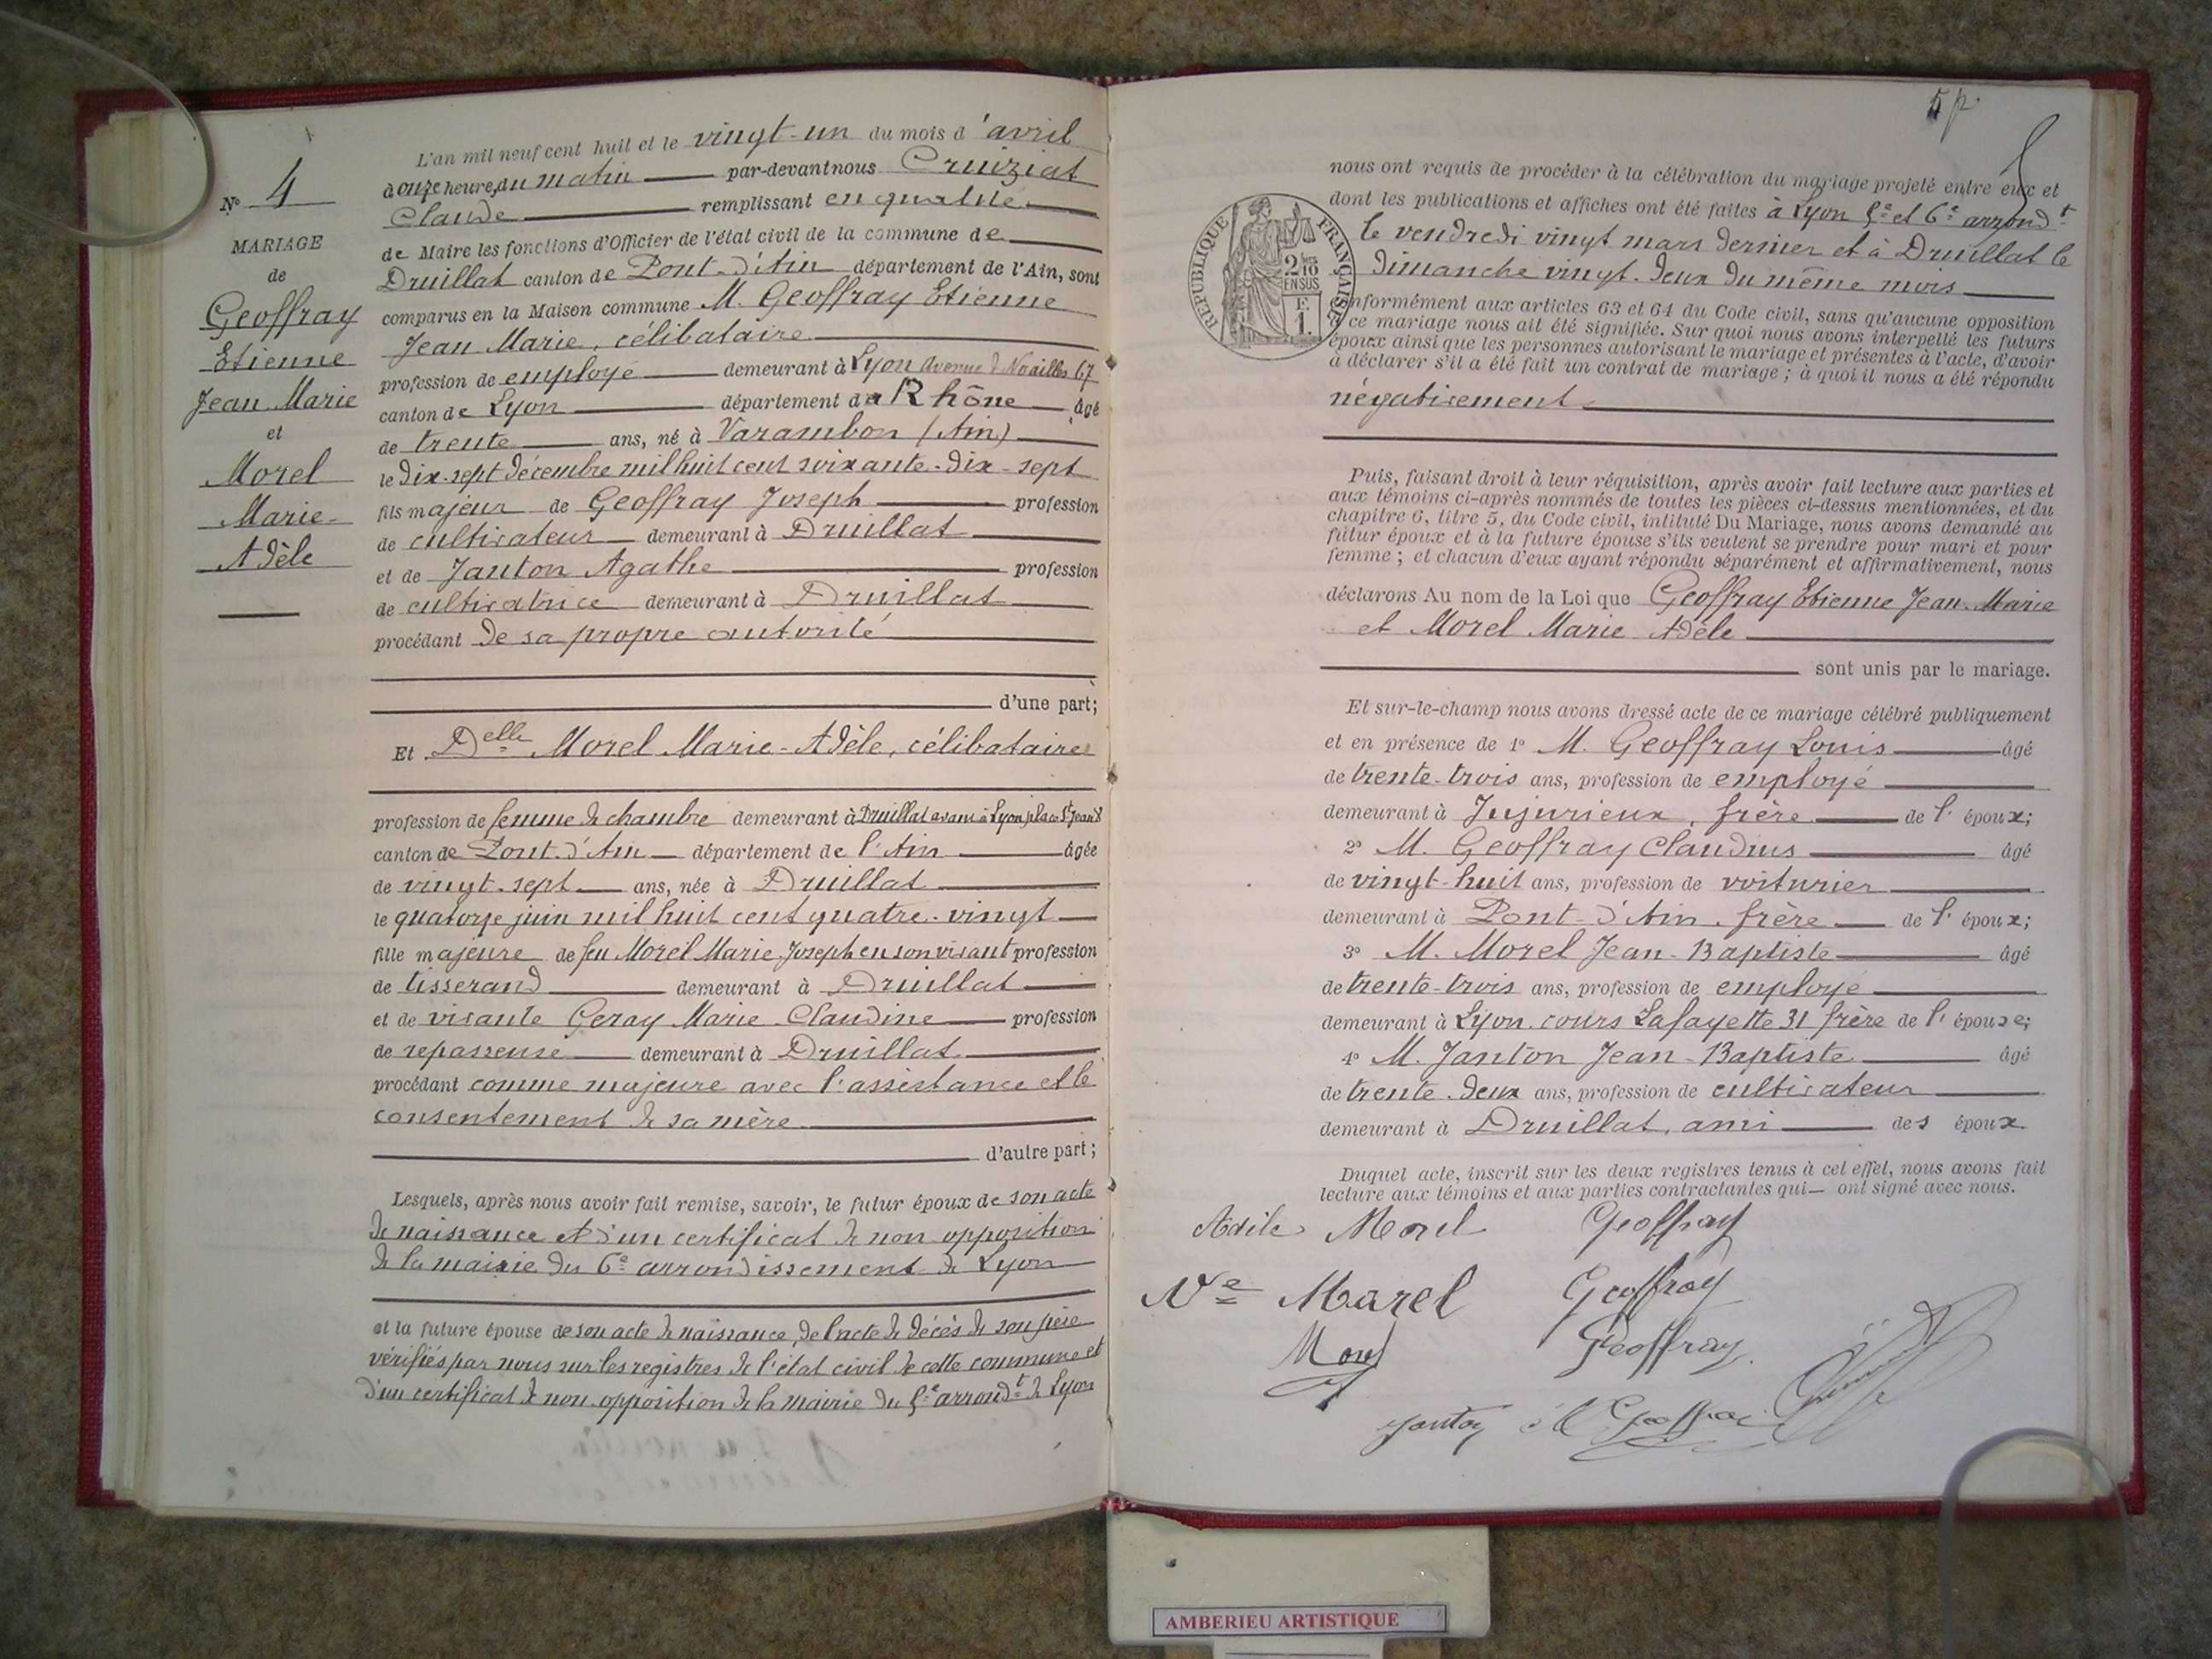 N° 4
MARIAGE
de
Geoffray
Etienne
Jean Marie
et
Morel
Marie-
Adèle
L'an mil neuf cent huit et le vingt-un du mois d'avril
à onze heures du matin par-devant nous Cruiziat
Claude remplissant en qualité
de Maire les fonctions d'Officier de l'état civil de la commune de
Druillat canton de Pont-d'Ain département de l'Ain, sont
comparus en la Maison commune M. Geoffray Etienne
Jean Marie, célibataire
profession de employé demeurant à Lyon Avenue de Noailles 67
canton de Lyon département du Rhône âgé
de trente ans, né à Varambon (Ain)
le dix-sept décembre mil huit cent soixante-dix-sept
fils majeur de Geoffray Joseph profession
de cultivateur demeurant à Druillat
et de Janton Agathe profession
de cultivatrice demeurant à Druillat
procédant de sa propre autorité
d'une part;
Et Delle Morel Marie-Adèle, célibataire
profession de femme de chambre demeurant à Druillat avant à Lyon place St Jean 8
canton de Pont-d'Ain département de l'Ain âgée
de vingt-sept ans, née à Druillat
le quatorze juin mil huit cent quatre-vingt
fille majeure de feu Morel Marie Joseph en son vivant profession
de tisserand demeurant à Druillat
et de vivante Geray Marie-Claudine profession
de repasseuse demeurant à Druillat
procédant comme majeure avec l'assistance et le
consentement de sa mère
d'autre part;
Lesquels, après nous avoir fait remise, savoir, le futur époux de son acte
de naissance et d'un certificat de non opposition
de la mairie du 6e arrondissement de Lyon
et la future épouse de son acte de naissance, de l'acte de décès de son père
vérifiés par nous sur les registres de l'état civil de cette commune et
d'un certificat de non opposition de la mairie du 5e arrondt de Lyon
5 p.
nous ont requis de procéder à la célébration du mariage projeté entre eux et
dont les publications et affiches ont été faites à Lyon 5e et 6e arrondt
le vendredi vingt mars dernier et à Druillat le
dimanche vingt-deux du même mois
RÉPUBLIQUE FRANÇAISE
2/10 EN SUS
F.
1.
conformément aux articles 63 et 64 du Code civil, sans qu'aucune opposition
à ce mariage nous ait été signifiée. Sur quoi nous avons interpellé les futurs
époux ainsi que les personnes autorisant le mariage et présentes à l'acte, d'avoir
à déclarer s'il a été fait un contrat de mariage; à quoi il nous a été répondu
négativement
Puis, faisant droit à leur réquisition, après avoir fait lecture aux parties et
aux témoins ci-après nommés de toutes les pièces ci-dessus mentionnées, et du
chapitre 6, titre 5, du Code civil, intitulé Du Mariage, nous avons demandé au
futur époux et à la future épouse s'ils veulent se prendre pour mari et pour
femme; et chacun d'eux ayant répondu séparément et affirmativement, nous
déclarons Au nom de la Loi que Geoffray Etienne Jean-Marie
et Morel Marie Adèle
sont unis par le mariage.
Et sur-le-champ nous avons dressé acte de ce mariage célébré publiquement
et en présence de 1° M. Geoffray Louis âgé
de trente-trois ans, profession de employé
demeurant à Jujurieux, frère de l'époux;
2° M. Geoffray Claudius âgé
de vingt-huit ans, profession de voiturier
demeurant à Pont-d'Ain, frère de l'époux;
3° M. Morel Jean-Baptiste âgé
de trente-trois ans, profession de employé
demeurant à Lyon, cours Lafayette 31 frère de l'épouse;
4° M. Janton Jean-Baptiste âgé
de trente-deux ans, profession de cultivateur
demeurant à Druillat, ami des époux
Duquel acte, inscrit sur les deux registres tenus à cet effet, nous avons fait
lecture aux témoins et aux parties contractantes qui ont signé avec nous.
Adèle Morel Geoffray
Ve Marel Geoffray
Morel Geoffray
Janton Geoffray
AMBERIEU ARTISTIQUE